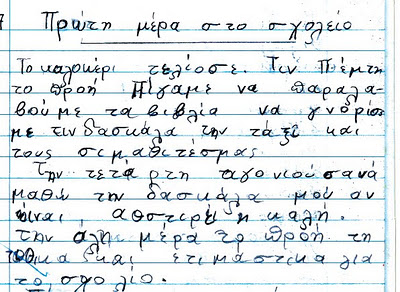 Πρώτη μέρα στο σχολείο
Το καλοκέρι τελίοσε. Τιν Πέμτη
το προή Πίγαμε να παραλα-
βούμε τα βιβλία να γνορίσο
με τιν δασκάλα την τάξι και
τους σιμαθιτέσμας
Την τετάρτη αγονιούσα νά
μαθω την δασκάλα μου αν
είναι αφστερή η καλή.
την άλη μέρα το προή τη
και ετιμάστικα για
το σχολίο.